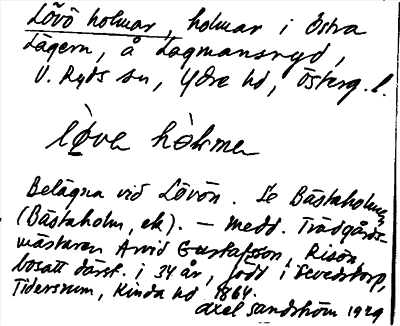 Lövö holmar, holmar i Östra
Lägern, å Lagmansryd,
V. Ryds sn, Ydre hd, Österg. l.
løva hòlmen
Belägna vid Lövön. Se Bästaholmen
(Bästaholm, ek). — Medd. Trädgårds-
mästaren Arvid Gustafsson, Risön,
bosatt därst. i 34 år, född i Sevedstorp,
Tidersrum, Kinda hd 1864.
Axel Sandström 1929